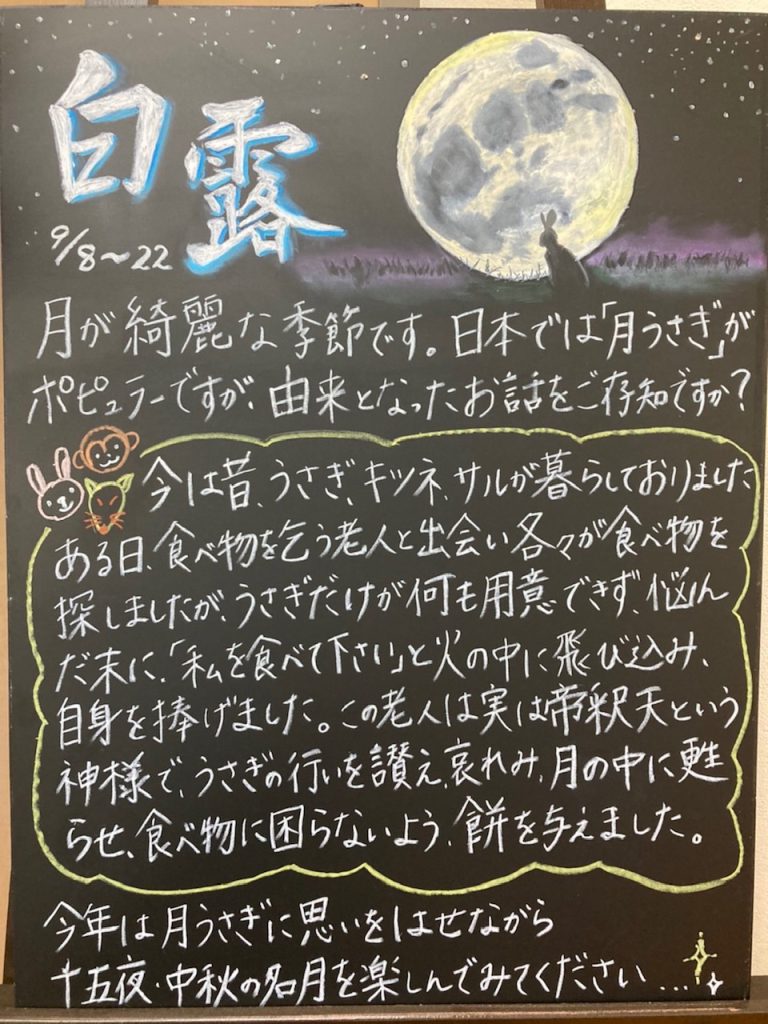 白露
9/8〜22
月が綺麗な季節です。日本では「月うさぎ」が
ポピュラーですが、由来となったお話をご存知ですか?
今は昔、うさぎ、キツネ、サルが暮らしておりました
ある日、食べ物を乞う老人と出会い各々が食べ物を
探しましたが、うさぎだけが何も用意できず、悩ん
だ末に、「私を食べて下さい」と火の中に飛び込み、
自身を捧げました。この老人は実は帝釈天という
神様で、うさぎの行いを讃え、哀れみ、月の中に甦
らせ、食べ物に困らないよう、餅を与えました。
今年は月うさぎに思いをはせながら
十五夜・中秋の名月を楽しんでみてください…